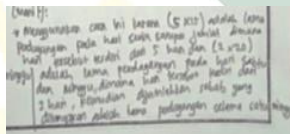 • Menggunakan cara ini karena (5×15) adalah lama
perdagangan pada hari senin sampai jum'at dimana
hari tersebut terdiri dari 5 hari dan (2 × 20)
adalah lama perdagangan pada hari sabtu
dan minggu, dimana hari tersebut terdiri dari
2 hari, kemudian dijumlahkan sebab yang
ditanyakan adalah lama perdagangan selama satu minggu